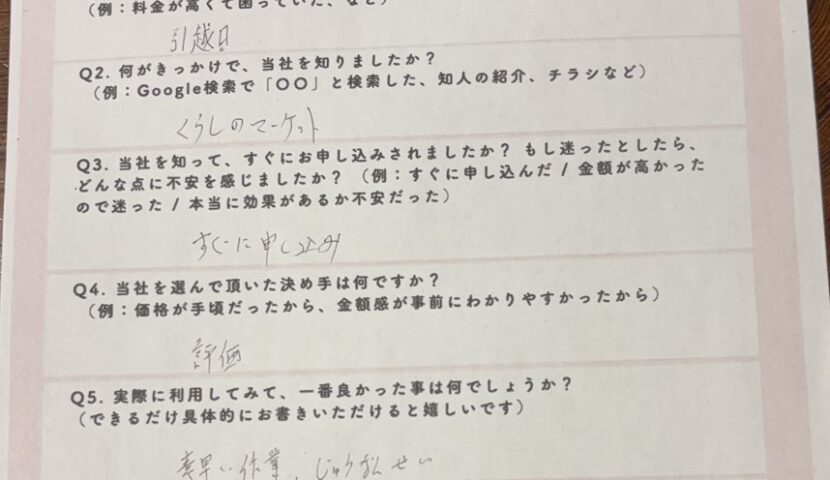 （例：料金が高くて困っていた、など）
引越日
Q2. 何がきっかけで、当社を知りましたか？
（例：Google検索で「〇〇」と検索した、知人の紹介、チラシなど）
くらしのマーケット
Q3. 当社を知って、すぐにお申し込みされましたか？ もし迷ったとしたら、
どんな点に不安を感じましたか？（例：すぐに申し込んだ / 金額が高かった
ので迷った / 本当に効果があるか不安だった）
すぐに申し込み
Q4. 当社を選んで頂いた決め手は何ですか？
（例：価格が手頃だったから、金額感が事前にわかりやすかったから）
評価
Q5. 実際に利用してみて、一番良かった事は何でしょうか？
（できるだけ具体的にお書きいただけると嬉しいです）
素早い作業、じゅうなんせい